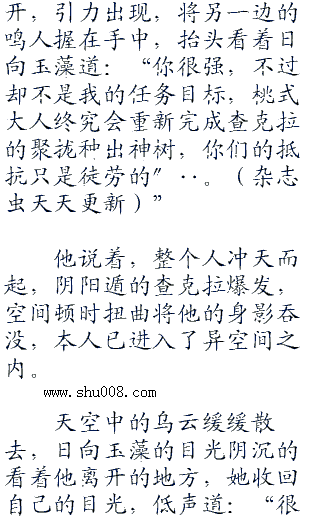 开，引力出现，将另一边的
鸣人握在手中，抬头看着日
向玉藻道：“你很强，不过
却不是我的任务目标，桃式
大人终究会重新完成查克拉
的聚拢种出神树，你们的抵
抗只是徒劳的”··。（杂志
虫天天更新）”
他说着，整个人冲天而
起，阴阳遁的查克拉爆发，
空间顿时扭曲将他的身影吞
没，本人已进入了异空间之
内。
www.shu008.com
天空中的乌云缓缓散
去，日向玉藻的目光阴沉的
看着他离开的地方，她收回
自己的目光，低声道：“很